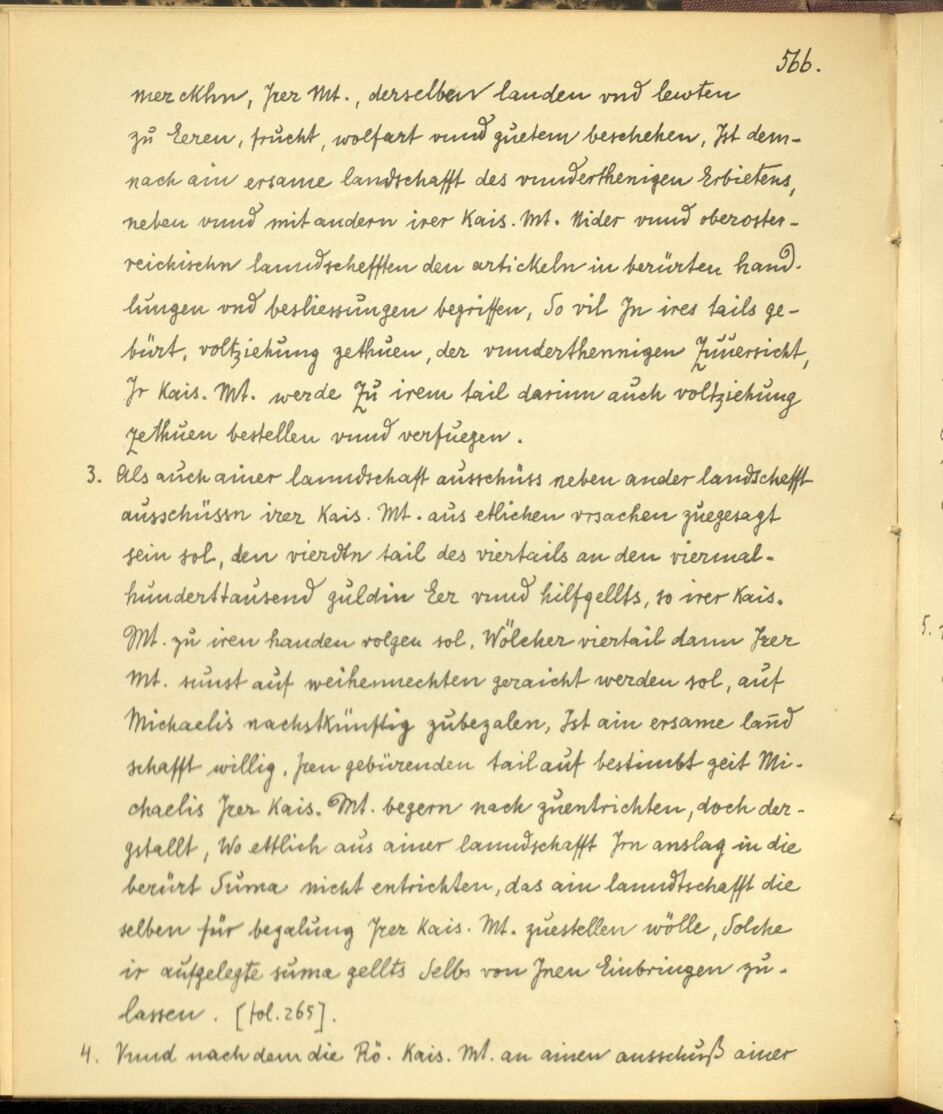 566.
merckhn, Jrer Mt., derselben landen vnd lewten
zu Eeren, frucht, wolfart vnnd guetem beschehen, Ist dem-
nach ain ersame landschafft des vnnderthenigen Erbietens,
neben vnnd mit andern irer Kais. Mt. Nider vnnd oberoster-
reichischn lanndschefften den artickeln in berürten hand-
lungen vnd besliessungen begriffen, So vil Jn ires tails ge-
bürt, voltziehung zethuen, der vnnderthennigen Zuuersicht,
Jr Kais. Mt. werde Zu irem tail darinn auch voltziehung
zethuen bestellen vnnd verfuegen.
3. Als auch ainer lanndschaft ausschüss neben ander landschefft
ausschüssn irer Kais. Mt. aus etlichen vrsachen zuegesagt
sein sol, den vierdtn tail des viertails an den viermal-
hunderttausend guldin Eer vnnd hilfgellts, so irer Kais.
Mt. zu iren handen volgen sol, Wölcher viertail dann Jrer
Mt. sunst auf weihennechten geraicht werden sol, auf
Michaelis nachstkünftig zubezalen, Ist ain ersame lannd
schafft willig, Jren gebürenden tail auf bestimbt zeit Mi-
chaelis Jrer Kais. Mt. begern nach zuentrichten, doch der-
gstallt, Wo ettlich aus ainer lanndschafft Jrn anslag in die
berürt Suma nicht entrichten, das ain lanndtschafft die
selben für bezalung Jrer Kais. Mt. zuestellen wölle, Solche
ir aufgelegte suma gellts Selbs von Jnen Einbringen zu-
lassen. [fol. 265].
4. Vnnd nach dem die Rö. Kais. Mt. an ainen ausschuß ainer
5.